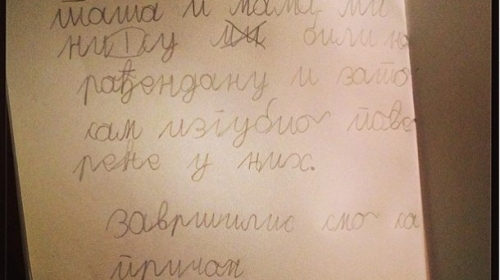 тата и мама ми
ни су ми били на
рађендану и зато
сам изгубио пове
рење у њих.
завршилис смо са
причом